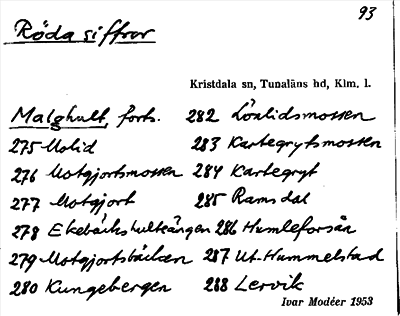 93
Röda siffror
Kristdala sn, Tunaläns hd, Klm. l.
Malghult, forts. 282 Lövlidsmossen
275 Molid 283 Kartegrytsmossen
276 Motgjortsmossen 284 Kartegryt
277 Motgjort 285 Ramsdal
278 Ekebäckshulteängen 286 Humleforsån
279 Motgjortsbäcken 287 Ut-Hummelstad
280 Kungebergen 288 Lervik
Ivar Modéer 1953